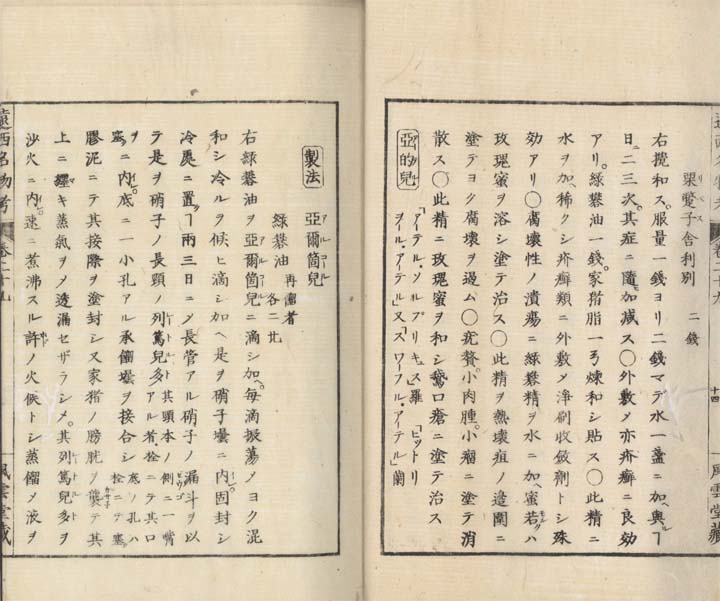 栗蘡子舎利別 二錢
右攪和ス。服量一錢ヨリ二錢マデ水一盞ニ加ヘ與ルヿ
日ニ二三次。其症ニ隨ヒ加减ス〇外敷メ亦疥癬ニ良効
アリ。緑礬油一錢。家猪脂一弓煉和シ貼ス〇此精ニ
水ヲ加ヘ稀クシ疥癬類ニ外敷メ淨刷收斂劑トシ殊
効アリ〇腐壊性ノ潰瘍ニ緑礬精ヲ水ニ加ヘ蜜若クハ
玫瑰蜜ヲ溶シ塗テ治ス〇此精ヲ熱壊疽ノ邊圍ニ
塗テヨク腐壊ヲ過ム〇疣贅。小肉腫。小瘤ニ塗テ消
散ス〇此精ニ玫瑰蜜ヲ和シ鵞口瘡ニ塗テ治ス
亞的兒 「アーテル・ソルプリキュス」羅 「ヒットリ
ヲール・アーテル」又「スワーフル・アーテル」蘭
十四
風雲堂藏
遠西名物考 卷二十九
製法 亞爾箇兒 再餾者
緑礬油 各二十
右緑礬油ヲ亞爾箇兒ニ滴シ加ヘ。毎滴振蕩メヨク混
和シ冷ルヲ候ヒ滴シ加ヘ是ヲ硝子壜ニ内レ固封シ
冷處ニ置ヿ兩三日ニメ長管アル硝子ノ漏斗ヲ以
テ是ヲ硝子ノ長頸ノ列篤兒多 其頭本ノ側ニ一嘴アル者栓ニテ其口
ヲ塞グニ内レ。底ニ一小孔アル承餾壜ヲ接合シ 底ノ孔ハ栓ニテ塞グ
膠泥ニテ其接際ヲ塗封シ又家猪ノ膀胱ヲ襲テ其
上ニ纒キ蒸氣ヲメ透漏セザラシメ。其列篤兒多ヲ
沙火ニ内レ。速ニ煮沸スル許ノ火候トシ蒸餾メ液ヲ
風雲堂藏